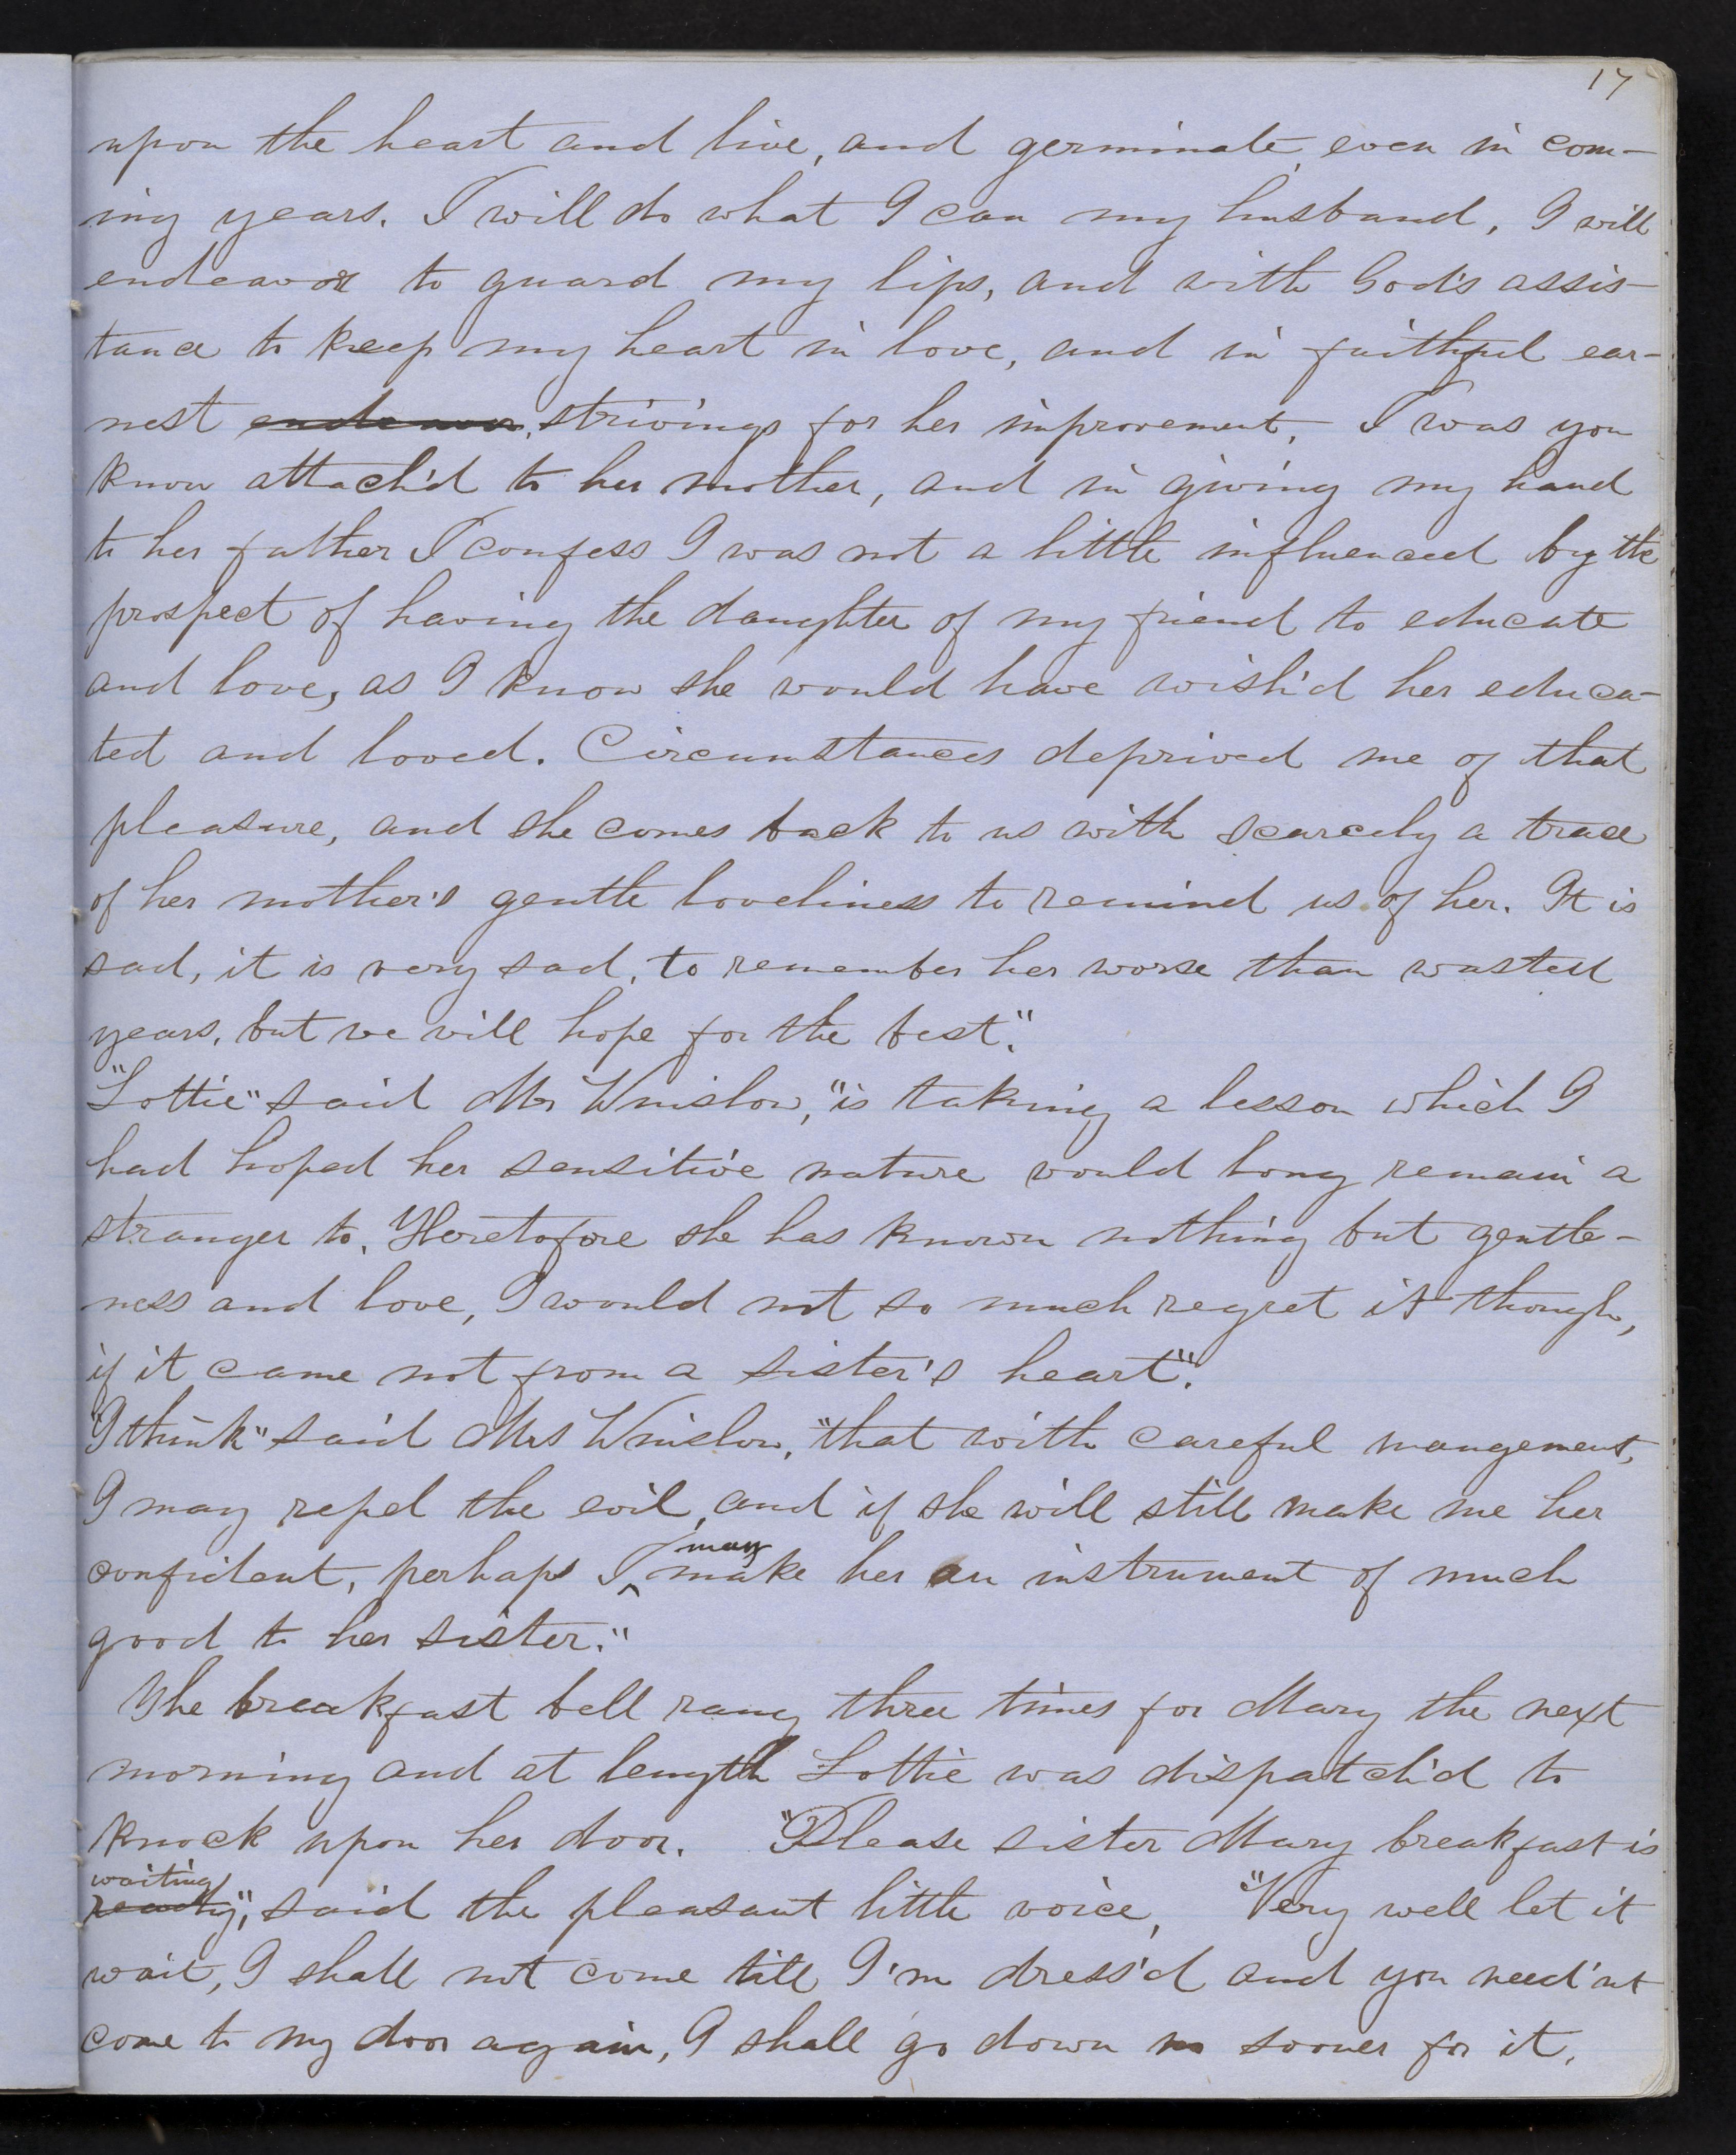 17
upon the heart and live, and germinate, even in com-
ing years. I will do what I can my husband, I will
endeavor to guard my lips, and with God's assis-
tance to keep my heart in love, and in faithful ear-
nest ~~endeavor,~~ strivings for her improvement. I was you
know attach'd to her mother, and in giving my hand
to her father I confess I was not a little influenced by the
prospect of having the daughter of my friend to educate
and love, as I know she would have wish'd her educa-
ted and loved. Circumstances deprived me of that
pleasure, and she comes back to us with scarcely a trace
of her mother's gentle loveliness to remind us of her. It is
sad, it is very sad, to remember her worse than wasted
years, but we will hope for the best."
"Lottie" said Mr Winslow, "is taking a lesson which I
had hoped her sensitive nature would long remain a
stranger to. Heretofore she has known nothing but gentle-
ness and love, I would not so much regret it though,
if it came not from a sister's heart".
"I think" said Mrs Winslow, "that with careful mangement,
I may repel the evil, and if she will still make me her
confident, perhaps I may make her an instrument of much
good to her sister."
The breakfast bell rang three times for Mary the next
morning and at length Lottie was dispatch'd to
knock upon her door. "Please sister Mary breakfast is
waiting ~~ready~~", said the pleasant little voice, "Very well let it
wait, I shall not come till I'm dress'd and you need'nt
come to my door again, I shall go down no sooner for it.